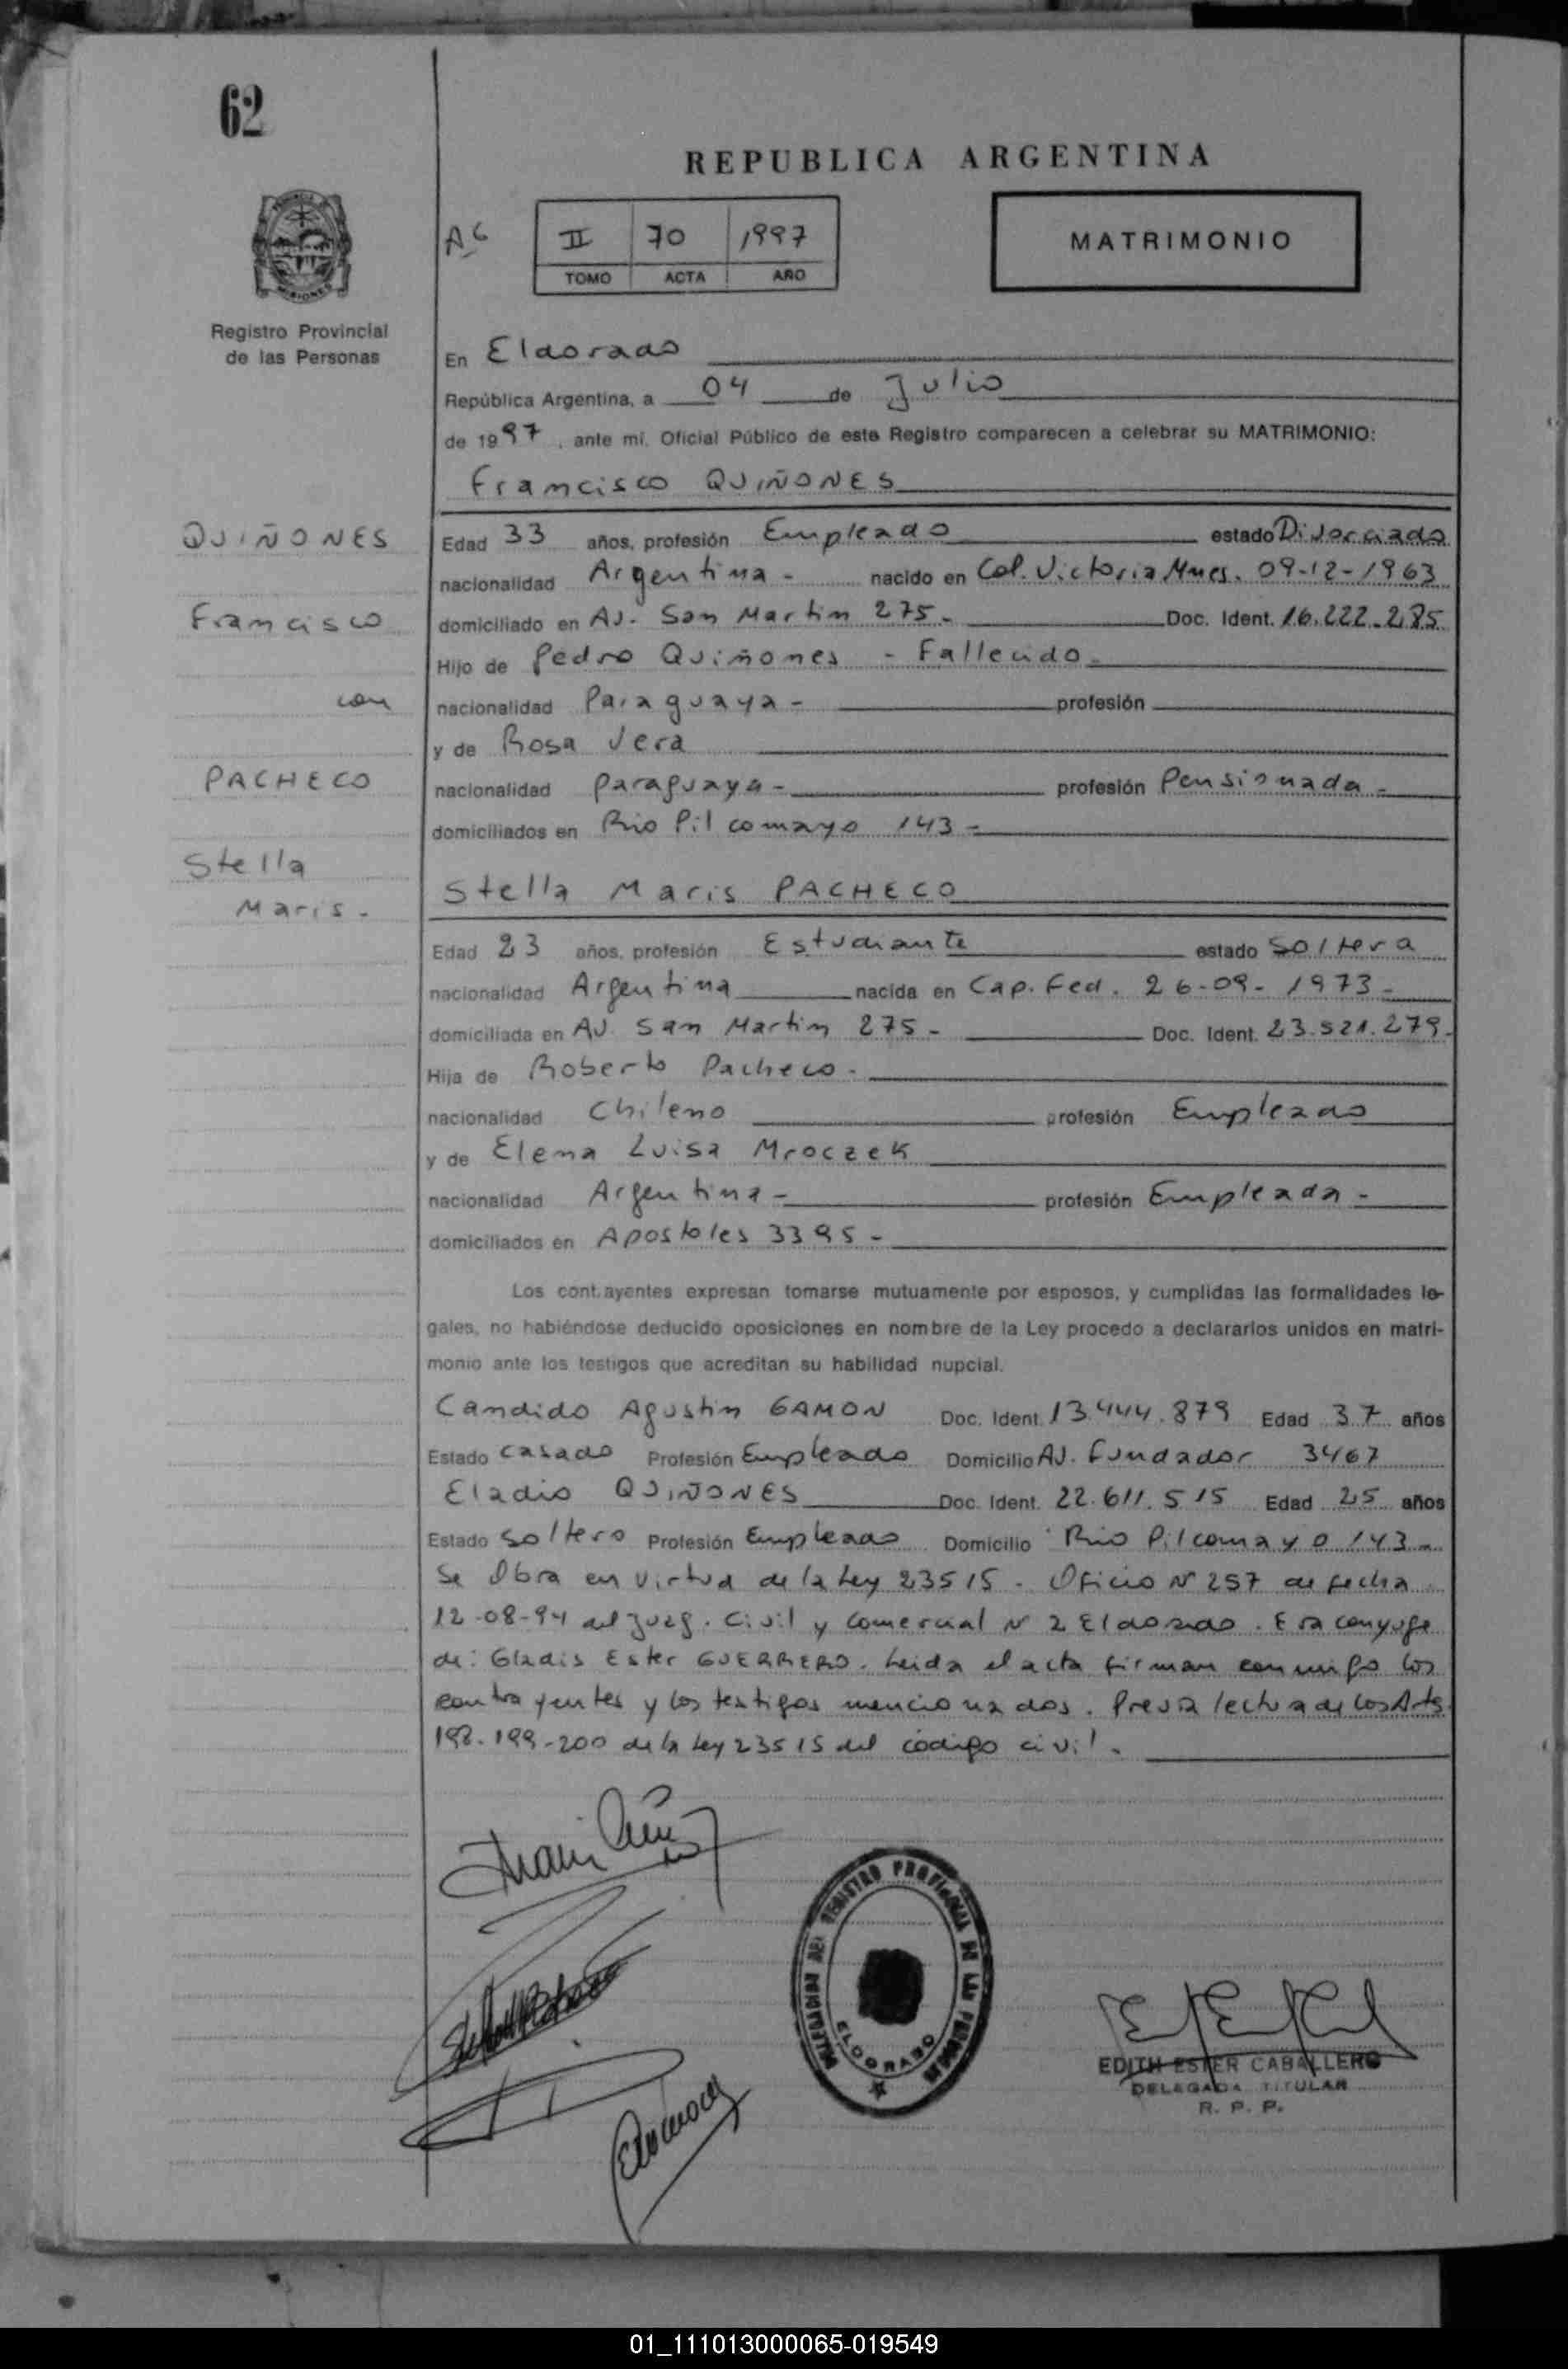 62
REPUBLICA ARGENTINA
AC
II 70 1997
TOMO ACTA AÑO
MATRIMONIO
MISIONES
Registro Provincial
de las Personas
En Eldorado
República Argentina, a 04 de Julio
de 1997, ante mí, Oficial Público de este Registro comparecen a celebrar su MATRIMONIO:
Francisco QUIÑONES
QUIÑONES
Francisco
con
PACHECO
Stella
Maris.
Edad 33 años, profesión Empleado estado Divorciado
nacionalidad Argentina - nacido en Col. Victoria Mnes. 09-12-1963
domiciliado en Av. San Martin 275 - Doc. Ident. 16.222.285
Hijo de Pedro Quiñones - Fallecido -
nacionalidad Paraguaya - profesión
y de Rosa Vera
nacionalidad Paraguaya - profesión Pensionada -
domiciliados en Rio Pilcomayo 143 -
Stella Maris PACHECO
Edad 23 años, profesión Estudiante estado Soltera
nacionalidad Argentina nacida en Cap. Fed. 26-09-1973 -
domiciliada en Av. San Martin 275 - Doc. Ident. 23.521.279.
Hija de Roberto Pacheco -
nacionalidad Chileno profesión Empleado
y de Elena Luisa Mroczek
nacionalidad Argentina - profesión Empleada -
domiciliados en Apostoles 3395 -
Los contrayentes expresan tomarse mutuamente por esposos, y cumplidas las formalidades le-
gales, no habiéndose deducido oposiciones en nombre de la Ley procedo a declararlos unidos en matri-
monio ante los testigos que acreditan su habilidad nupcial.
Candido Agustin GAMON Doc. Ident. 13.444.879 Edad 37 años
Estado Casado Profesión Empleado Domicilio Av. Fundador 3467
Eladio QUIÑONES Doc. Ident. 22.611.515 Edad 25 años
Estado Soltero Profesión Empleado Domicilio Rio Pilcomayo 143 -
Se Obra en virtud de la Ley 23515 - Oficio Nº 257 de fecha
12-08-94 del Juzg. Civil y Comercial Nº 2 Eldorado. Era conyuge
de: Gladis Ester GUERRERO. Leida el acta firman conmigo los
contrayentes y los testigos mencionados. Previa lectura de los Arts.
198-199-200 de la Ley 23515 del código civil.
DELEGACION DEL REGISTRO PROVINCIAL DE LAS PERSONAS
ELDORADO
EDITH ESTER CABALLERO
DELEGADA TITULAR
R. P. P.
01_111013000065-019549